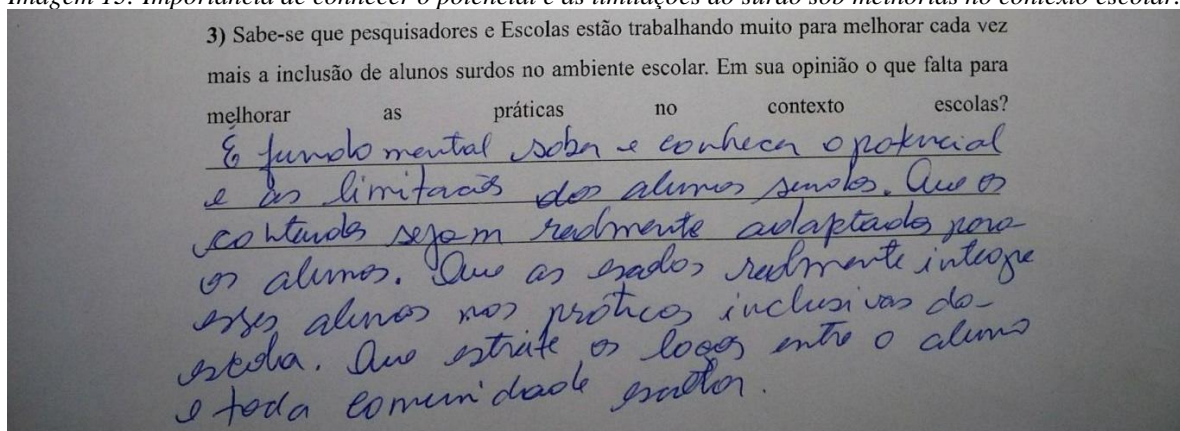 Imagem 15: Importância de conhecer o potencial e as limitações do surdo sob melhorias no contexto escolar.
3) Sabe-se que pesquisadores e Escolas estão trabalhando muito para melhorar cada vez
mais a inclusão de alunos surdos no ambiente escolar. Em sua opinião o que falta para
melhorar as práticas no contexto escolas?
É fundamental saber e conhecer o potencial
e as limitações dos alunos surdos. Que os
conteudos sejam realmente adaptados para
os alunos. Que as realmente integre
esses alunos nas práticas inclusivas da
escola. Que estreite os laços entre o aluno
e toda comunidade escolar.